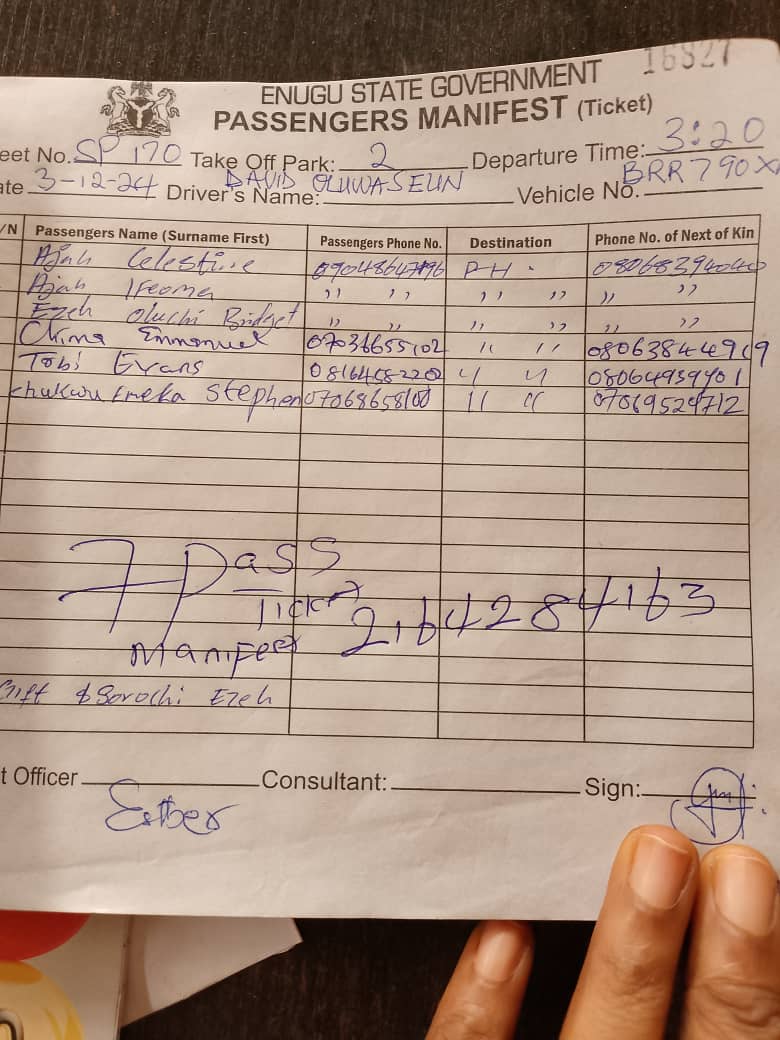 16827
ENUGU STATE GOVERNMENT
PASSENGERS MANIFEST (Ticket)
eet No. SP 170 Take Off Park: 2 Departure Time: 3:20
ate 3-12-24 Driver's Name: DAVID OLUWASEUN Vehicle No. BRR 790 X
/N Passengers Name (Surname First) Passengers Phone No. Destination Phone No. of Next of Kin
Ajah Celestine PH.
Ajah Ifeoma ,, ,, ,, ,, ,, ,,
Ezeh Oluchi Bridget ,, ,, ,, ,, ,, ,,
Chima Emmanuel 07036655102 ,, ,, 08063844919
Tobi Evans 08164582202 ,, ,, 08064959401
Chukwu Emeka Stephen 07068658100 ,, ,, 07069529712
7 Pass
Ticket
Manifest 2,164284163
Gift & Sorochi Ezeh
t Officer Consultant: Sign:
Esther